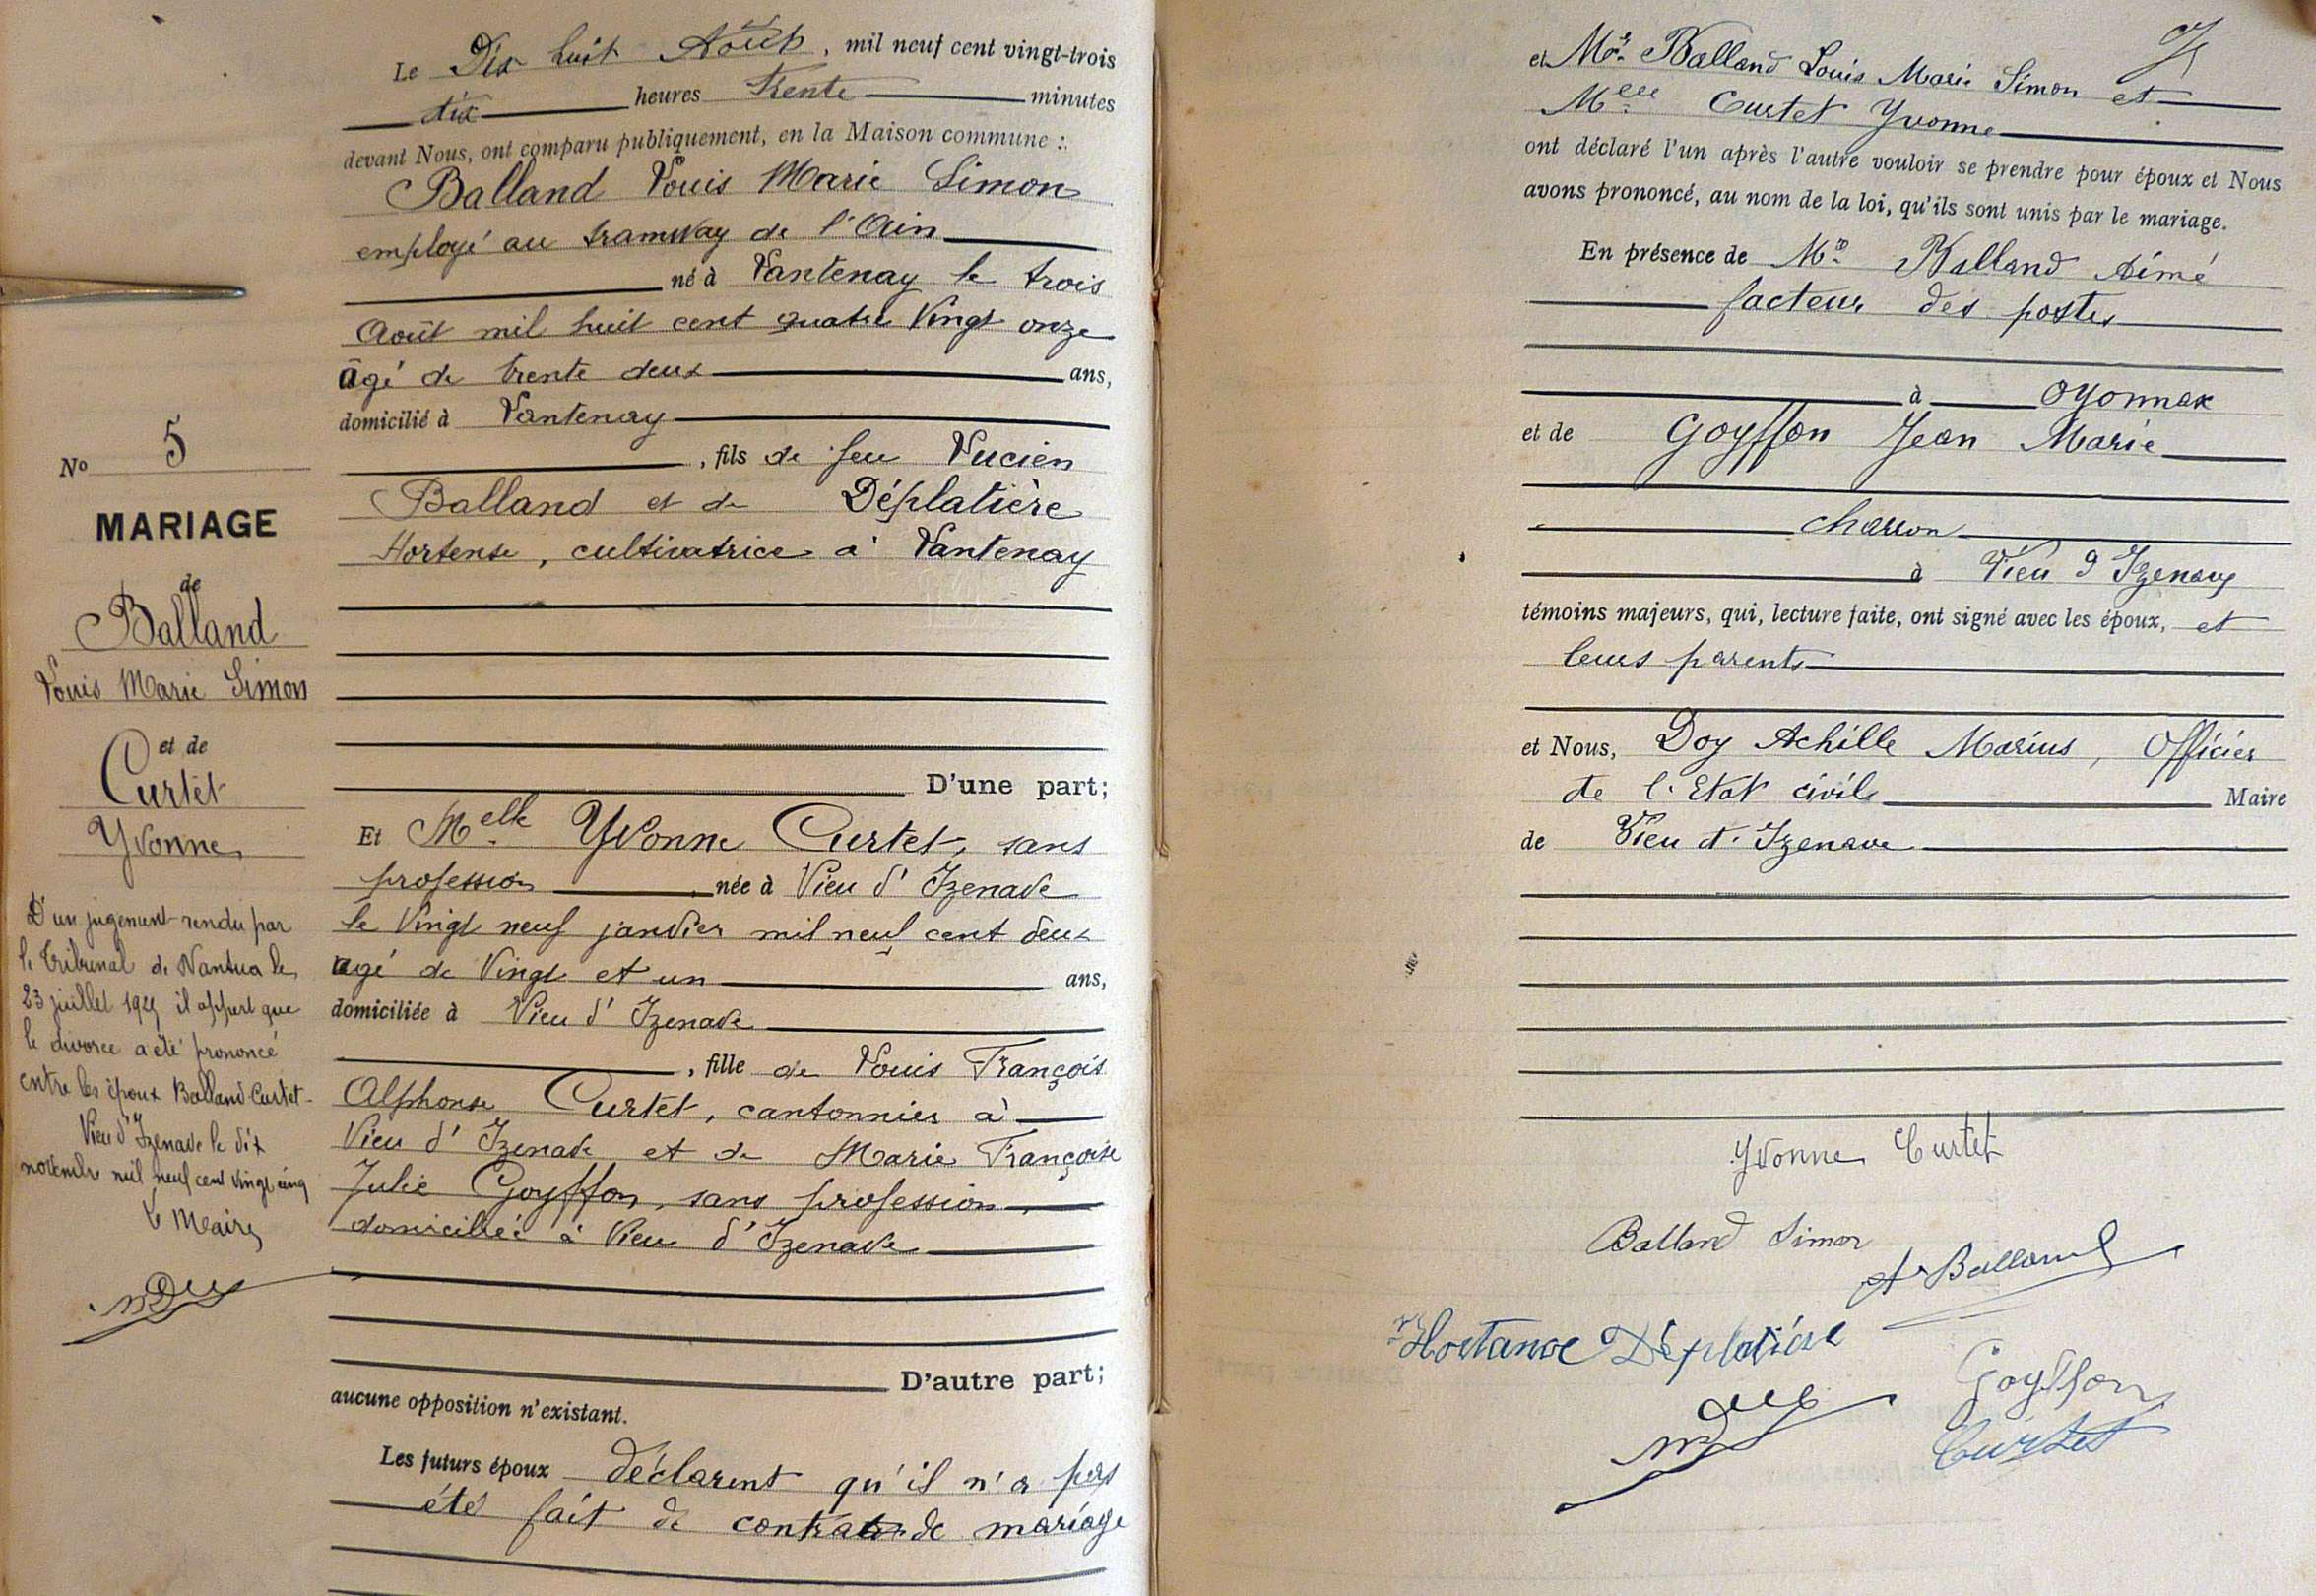 Le Dix huit Août, mil neuf cent vingt-trois
dix heures trente minutes
devant Nous, ont comparu publiquement, en la Maison commune :
Balland Louis Marie Simon
employé au tramway de l'Ain
né à Lantenay le trois
Août mil huit cent quatre vingt onze
agé de trente deux ans,
domicilié à Lantenay
, fils de feu Lucien
Balland et de Déplatière
Hortense, cultivatrice à Lantenay
D'une part;
Et Melle Yvonne Curtet, sans
profession née à Vieu d'Izenave
le vingt neuf janvier mil neuf cent deux
agé de vingt et un ans,
domiciliée à Vieu d'Izenave
, fille de Louis François
Alphonse Curtet, cantonnier à
Vieu d'Izenave et de Marie Françoise
Julie Goyffon, sans profession,
domiciliée à Vieu d'Izenave
D'autre part;
aucune opposition n'existant.
Les futurs époux déclarent qu'il n'a pas
été fait de contrat de mariage
No 5
MARIAGE
de
Balland
Louis Marie Simon
et de
Curtet
Yvonne
D'un jugement rendu par
le Tribunal de Nantua le
23 juillet 1925 il appert que
le divorce a été prononcé
entre les époux Balland Curtet-
Vieu d'Izenave le dix
novembre mil neuf cent vingt cinq
Le Maire
et Mr. Balland Louis Marie Simon et
Melle Curtet Yvonne
ont déclaré l'un après l'autre vouloir se prendre pour époux et Nous
avons prononcé, au nom de la loi, qu'ils sont unis par le mariage.
En présence de Mr. Balland Aimé
facteur des postes
à Oyonnax
et de Goyffon Jean Marie
charron
à Vieu d'Izenave
témoins majeurs, qui, lecture faite, ont signé avec les époux, et
leurs parents
et Nous, Doy Achille Marius, Officier
de l'Etat civil Maire
de Vieu d'Izenave
Yvonne Curtet
Balland Simon
A Balland
Hortanse Déplatière
Goyffon
Curtet